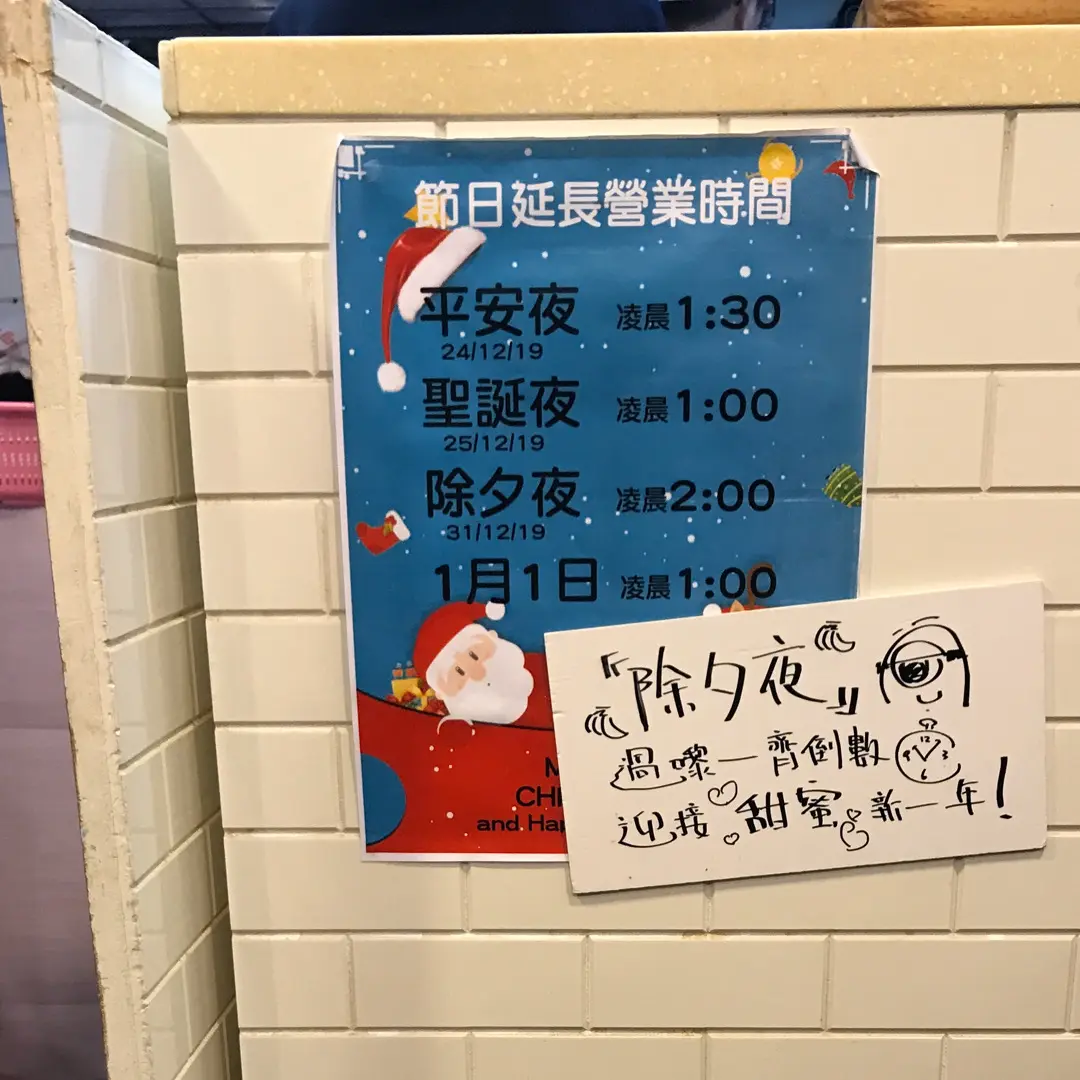 節日延長營業時間
平安夜 凌晨1:30
24/12/19
聖誕夜 凌晨1:00
25/12/19
除夕夜 凌晨2:00
31/12/19
1月1日 凌晨1:00
and
『除夕夜』
過嚟一齊倒數
12
9 3
6
迎接甜蜜新一年!